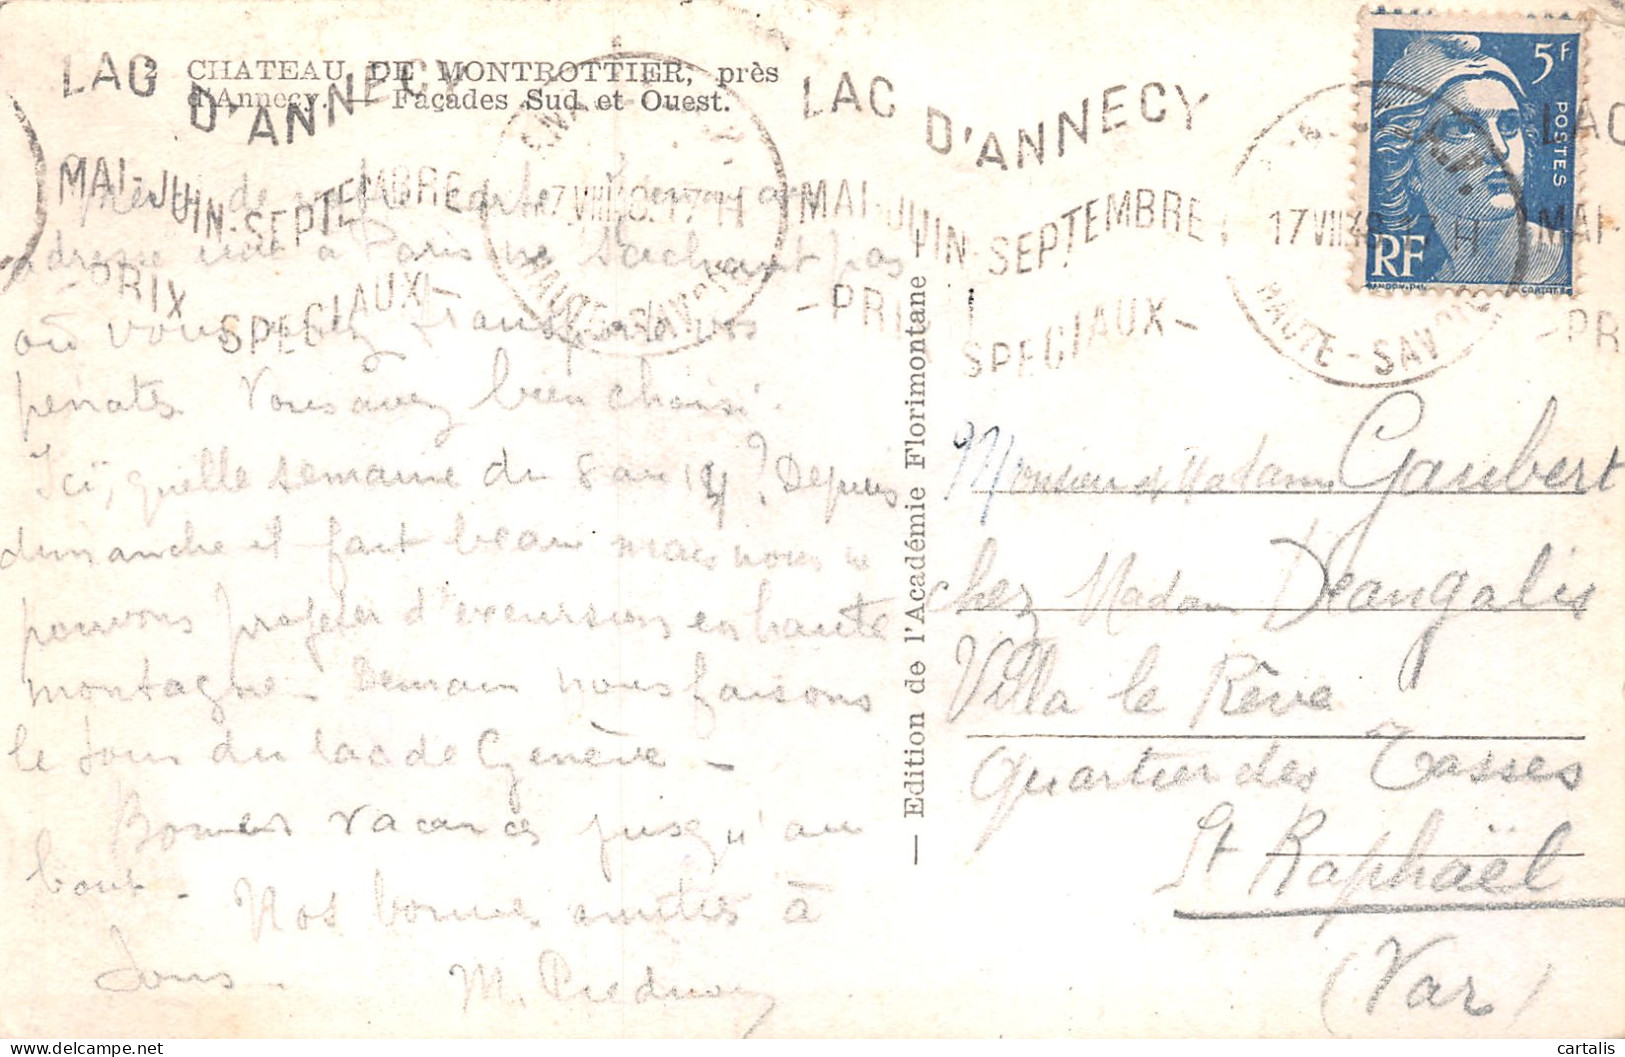 CHATEAU DE MONTROTTIER, près
d'Annecy. — Façades Sud et Ouest.
LAC D'ANNECY
MAI-JUIN-SEPTEMBRE
-PRIX SPECIAUX-
HAUTE-SAVOIE
LAC D'ANNECY
MAI-JUIN-SEPTEMBRE
-PRIX SPECIAUX-
17 VIII
HAUTE-SAVOIE
LAC
MAI-
-PR
5F
POSTES
RF
de carte
adresse à Paris ne sachant pas
où vous
penates. Vous avez bien choisi.
Ici, quelle semaine du 8 au 14! Depuis
dimanche il fait beau mais nous ne
pouvons profiter d'excursions en haute
montagne. Demain nous faisons
le tour du lac de Genève —
Bonnes vacances jusqu'au
bout. Nos bonnes amitiés à
tous.
M.
— Edition de l'Académie Florimontane —
Monsieur et Madame Gaubert
chez Madame Deangelis
Villa le Rêve
Quartier des Tasses
St Raphaël
(Var)
cartalis